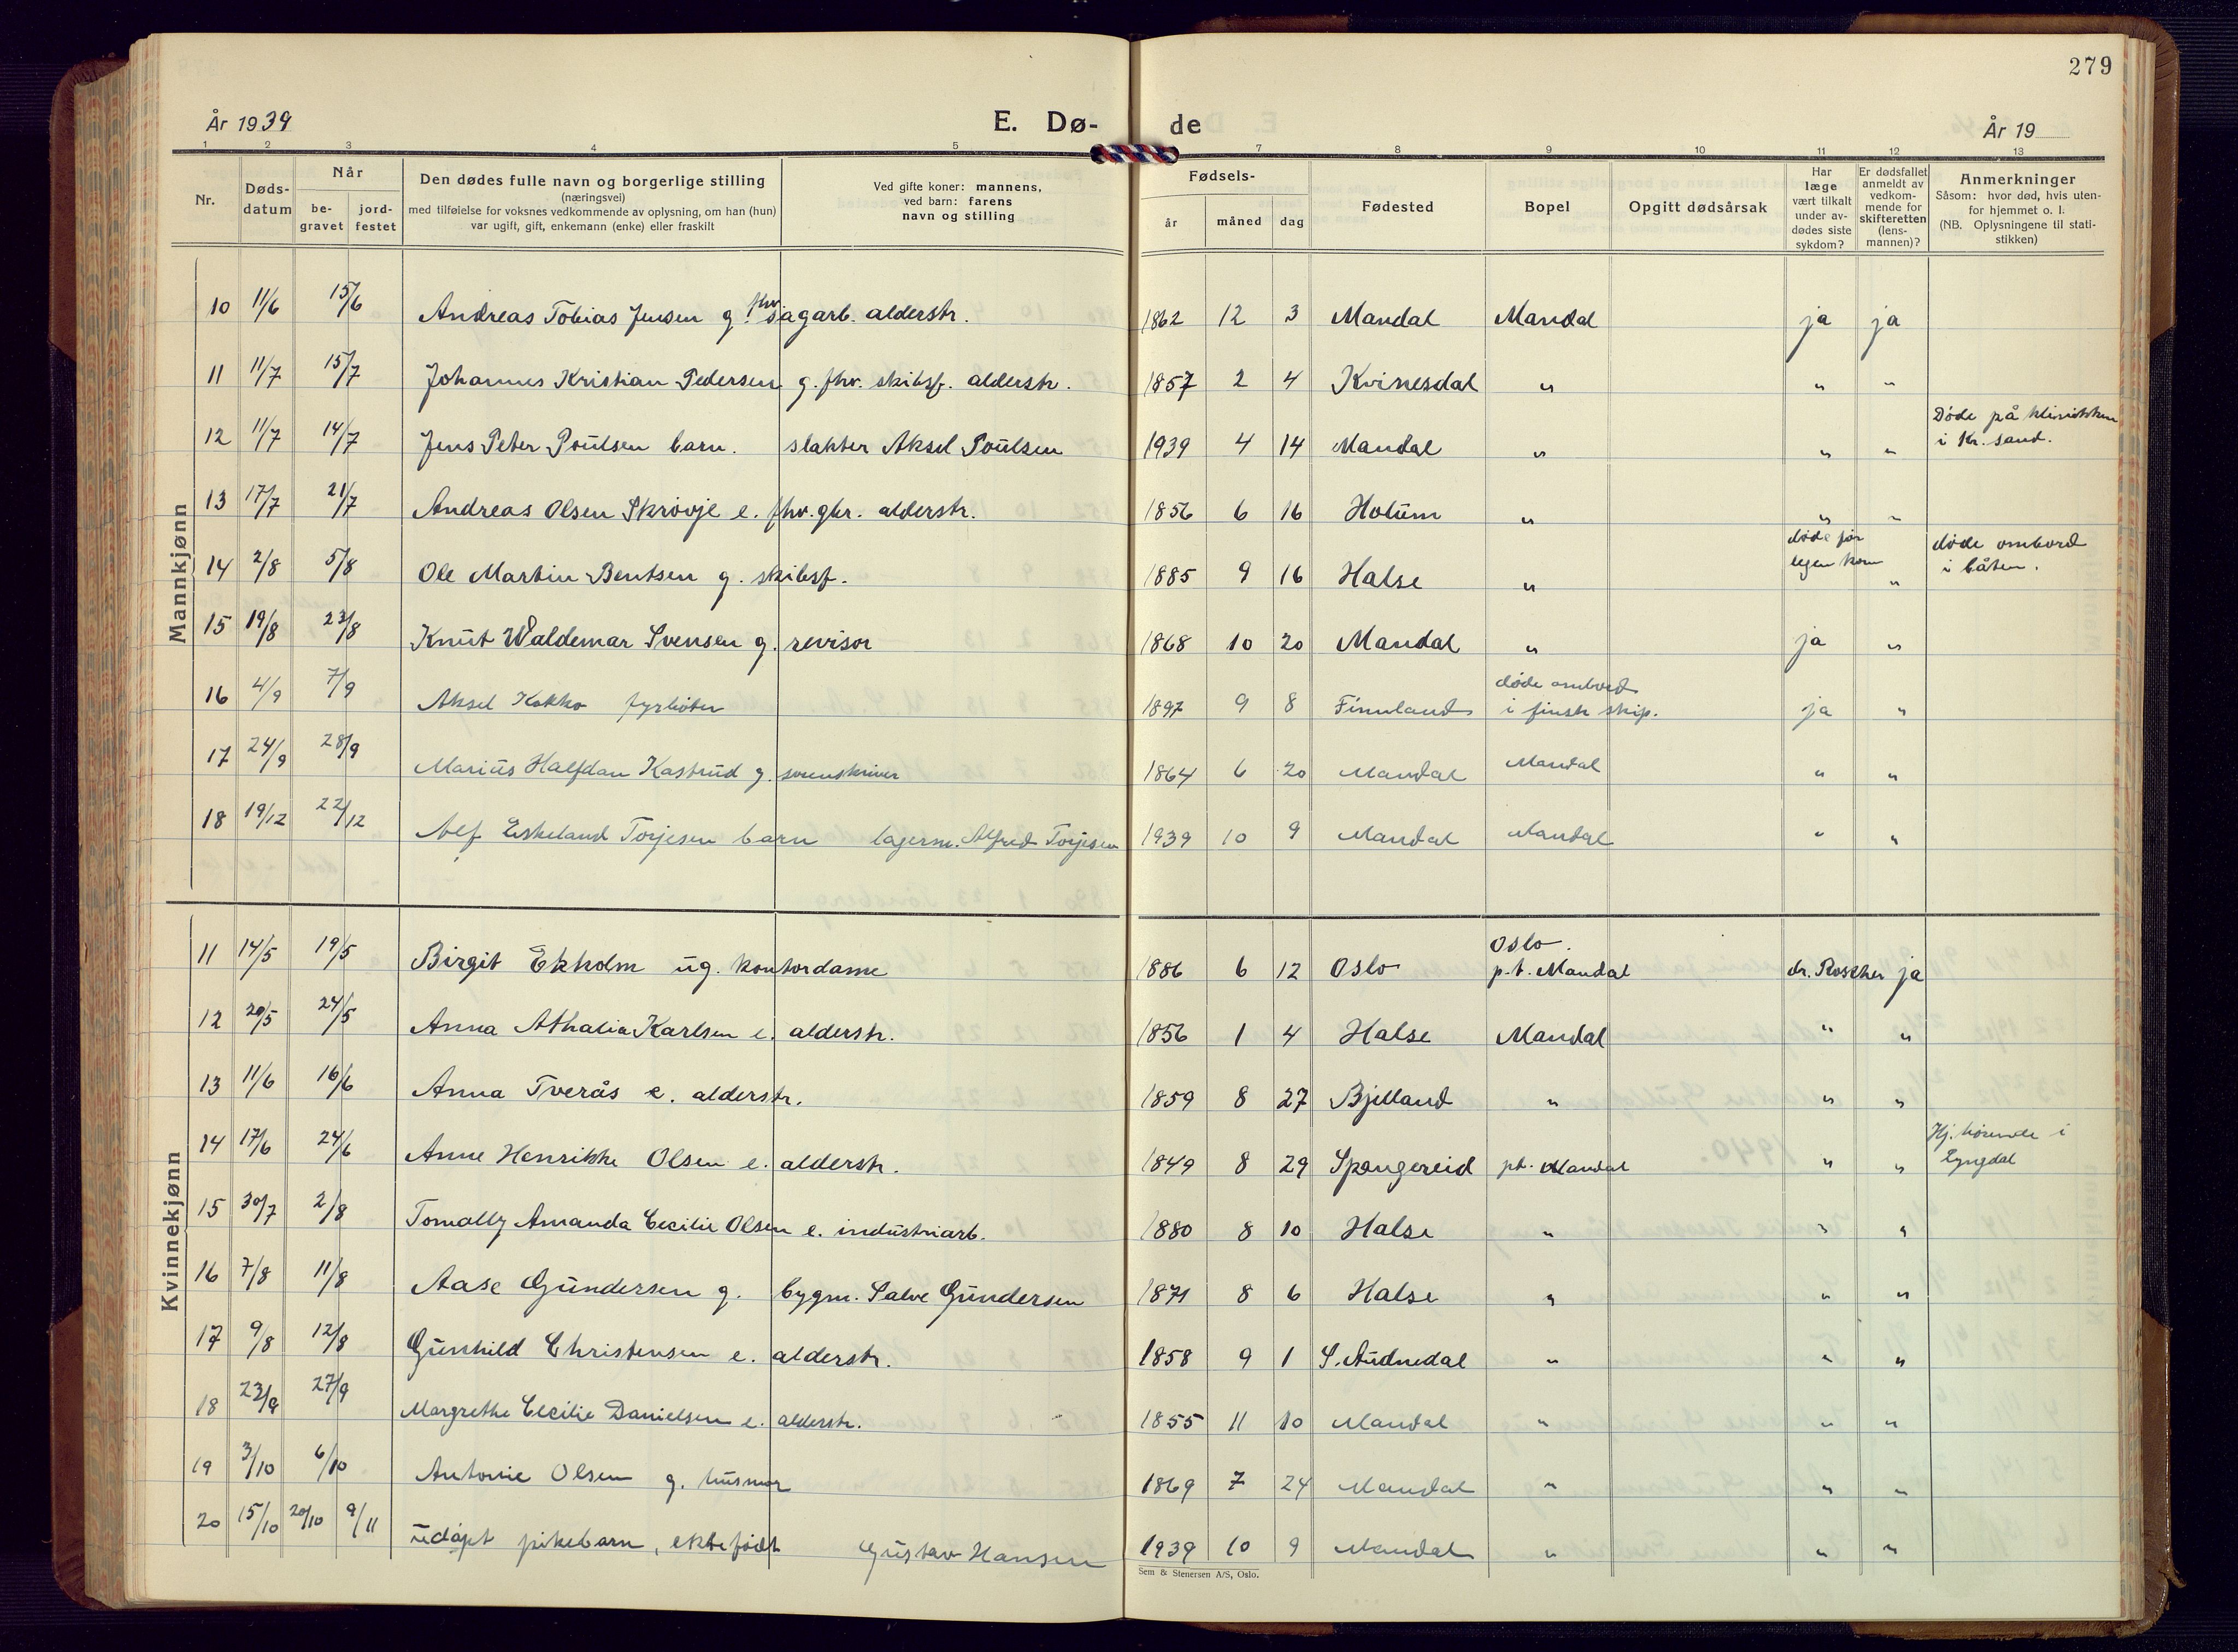 279
År 1939
E. Dø-
de
År 19
1 2 3 4 5 7 8 9 10 11 12 13
Nr.
Døds-
datum
Når
be-
gravet
jord-
festet
Den dødes fulle navn og borgerlige stilling
(næringsvei)
med tilføielse for voksnes vedkommende av oplysning, om han (hun)
var ugift, gift, enkemann (enke) eller fraskilt
Ved gifte koner: mannens,
ved barn: farens
navn og stilling
Fødsels-
år måned dag
Fødested
Bopel
Opgitt dødsårsak
Har
læge
vært tilkalt
under av-
dødes siste
sykdom?
Er dødsfallet
anmeldt av
vedkom-
mende for
skifteretten
(lens-
mannen)?
Anmerkninger
Såsom: hvor død, hvis uten-
for hjemmet o. l.
(NB. Oplysningene til stati-
stikken)
Mannkjønn
10 11/6 15/6 Andreas Tobias Jensen g. fhv. sagarb. alderstr. 1862 12 3 Mandal Mandal ja ja
11 11/7 15/7 Johannes Kristian Pedersen g. fhv. skibsf. alderstr. 1857 2 4 Kvinesdal " " "
12 11/7 14/7 Jens Peter Poulsen barn. slakter Aksel Poulsen 1939 4 14 Mandal " " " Døde på klinikken
i Kr. sand.
13 17/7 21/7 Andreas Olsen Skrovje e. fhv. gbr. alderstr. 1856 6 16 Holum " " "
14 2/8 5/8 Ole Martin Bentsen g. skibsf. 1885 9 16 Halse " døde før
legen kom " døde ombord
i båten.
15 19/8 23/8 Knut Waldemar Svensen g. revisor 1868 10 20 Mandal " ja "
16 4/9 7/9 Aksel Kokko fyrbøter 1897 9 8 Finnland døde ombord
i finsk skip. ja "
17 24/9 28/9 Marius Halfdan Kastrud g. sorenskriver 1864 6 20 Mandal Mandal " "
18 19/12 22/12 Alf Eskeland Torjesen barn lagerm. Alfred Torjesen 1939 10 9 Mandal Mandal " "
Kvinnekjønn
11 14/5 19/5 Birgit Ekholm ug. kontordame 1886 6 12 Oslo Oslo.
p.t. Mandal dr. Roscher ja
12 20/5 24/5 Anna Athalia Karlsen e. alderstr. 1856 1 4 Halse Mandal " "
13 11/6 16/6 Anna Tverås e. alderstr. 1859 8 27 Bjelland " " "
14 17/6 24/6 Anne Henrikke Olsen e. alderstr. 1849 8 29 Spangereid pt. Mandal " " Hj. hørende i
Lyngdal
15 30/7 2/8 Tomally Amanda Cecilie Olsen e. industriarb. 1880 8 10 Halse " " "
16 7/8 11/8 Aase Gundersen g. bygm. Salve Gundersen 1871 8 6 Halse " " "
17 9/8 12/8 Gunhild Christensen e. alderstr. 1858 9 1 S. Audnedal " " "
18 23/9 27/9 Margrethe Cecilie Danielsen e. alderstr. 1855 11 10 Mandal " " "
19 3/10 6/10 Antonie Olsen g. husmor 1869 7 24 Mandal " " "
20 15/10 20/10 9/11 udøpt pikebarn, ektefødt Gustav Hansen 1939 10 9 Mandal " " "
Sem & Stenersen A/S, Oslo.